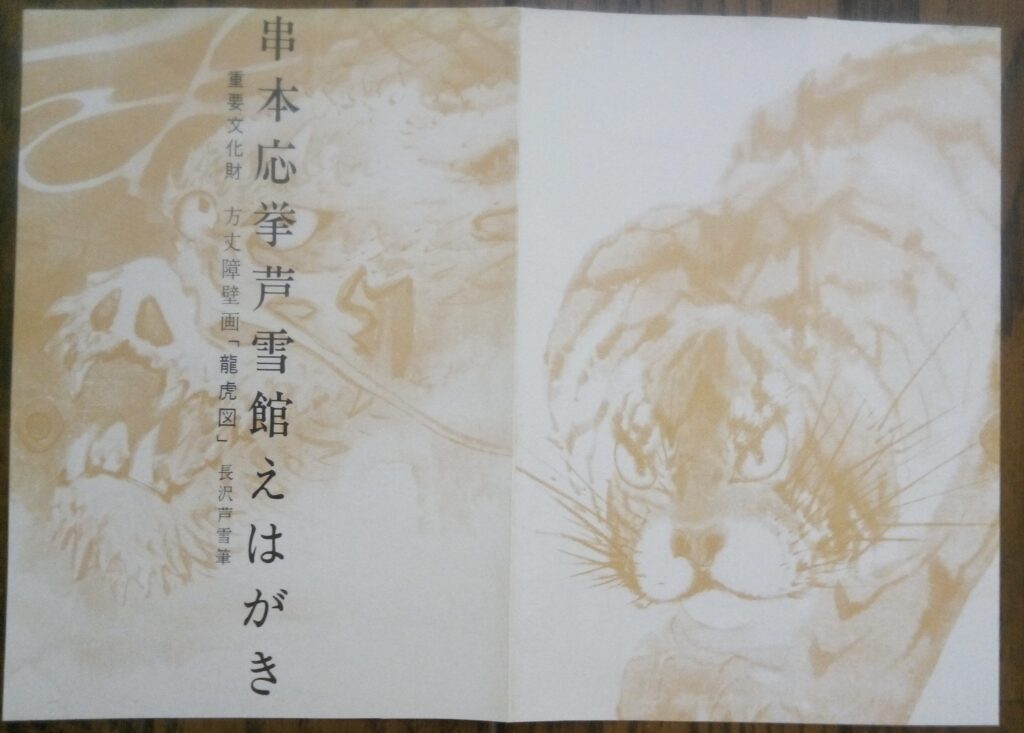 串本応挙芦雪館えはがき
重要文化財 方丈障壁画「龍虎図」 長沢芦雪筆